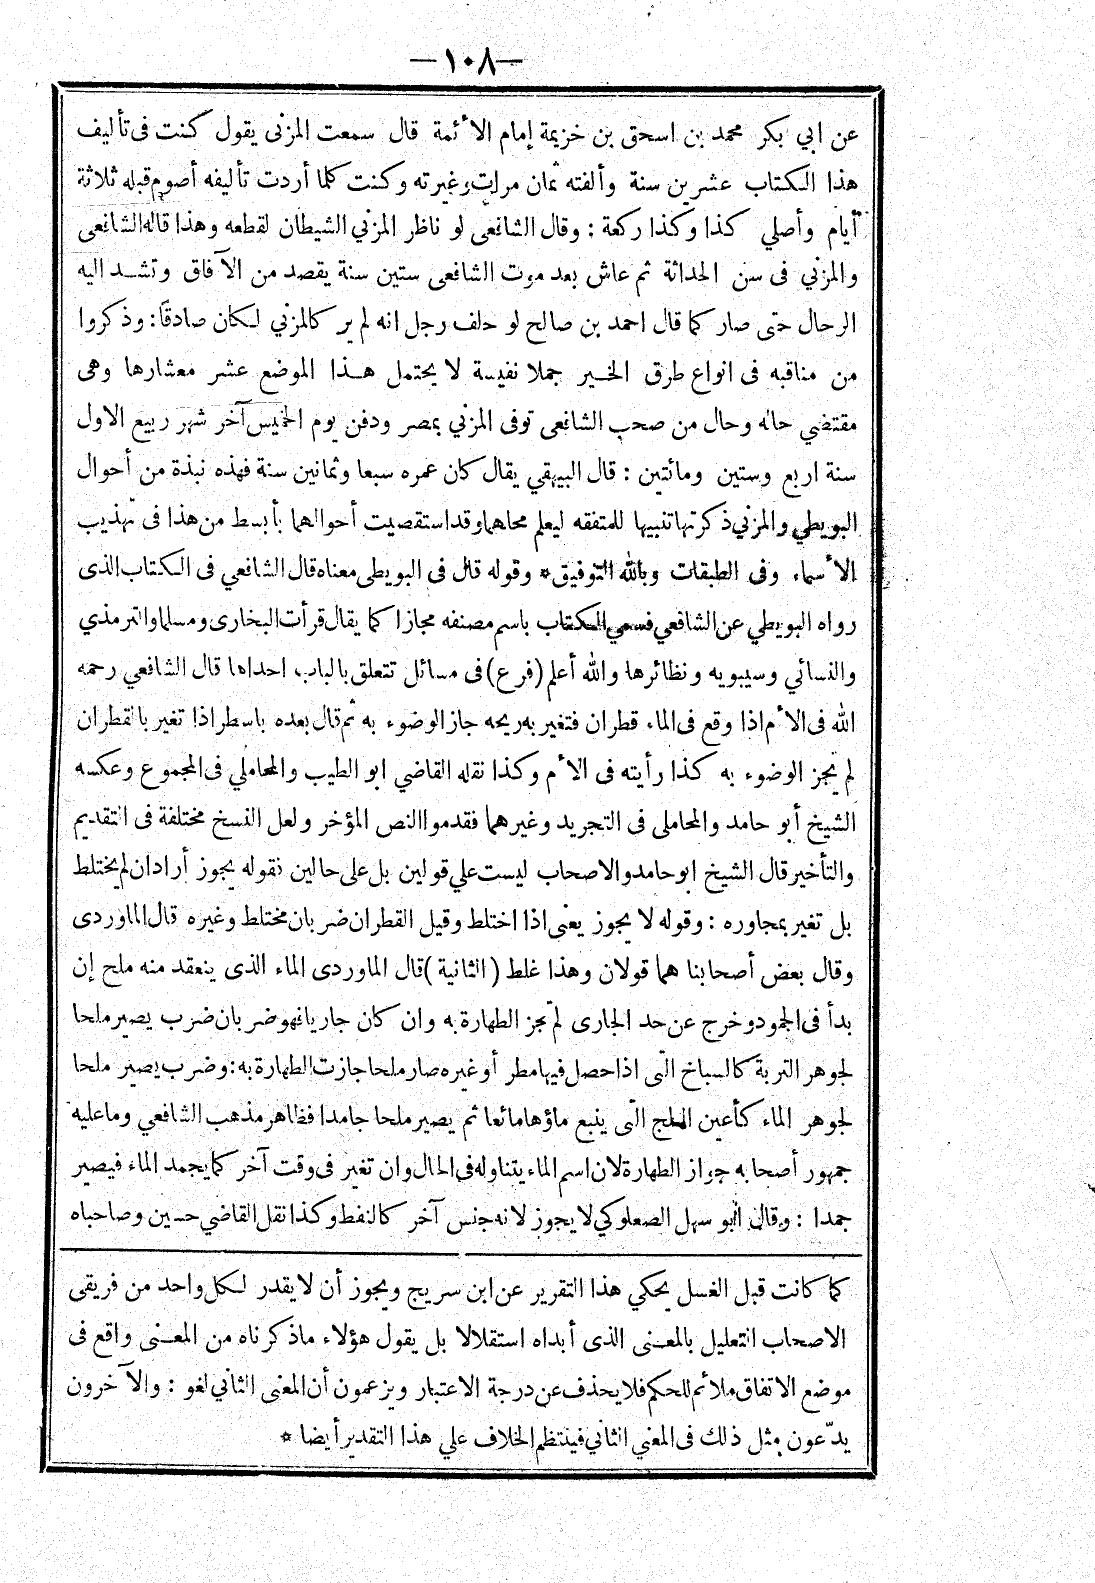 —١٠٨—
عن ابي بكر محمد بن اسحق بن خزيمة إمام الأئمة قال سمعت المزنى يقول كنت فى تأليف
هذا الكتاب عشرين سنة وألفته ثمان مرات وغيرته وكنت كلما أردت تأليفه أصوم قبله ثلاثة
أيام وأصلي كذا وكذا ركعة : وقال الشافعى لو ناظر المزني الشيطان لقطعه وهذا قاله الشافعى
والمزني فى سن الحداثة ثم عاش بعد موت الشافعى ستين سنة يقصد من الآفاق وتشد اليه
الرحال حتى صار كما قال احمد بن صالح لو حلف رجل انه لم ير كالمزني لكان صادقا : وذكروا
من مناقبه فى انواع طرق الخير جملا نفيسة لا يحتمل هذا الموضع عشر معشارها وهى
مقتضي حاله وحال من صحب الشافعى توفى المزني بمصر ودفن يوم الخميس آخر شهر ربيع الاول
سنة اربع وستين ومائتين : قال البيهقي يقال كان عمره سبعا وثمانين سنة فهذه نبذة من أحوال
البويطي والمزني ذكرتها تنبيها للمتفقه ليعلم محلهما وقد استقصيت أحوالهما بأبسط من هذا فى تهذيب
الأسماء وفى الطبقات وبالله التوفيق* وقوله قال فى البويطى معناه قال الشافعي فى الكتاب الذى
رواه البويطي عن الشافعي فسمي الكتاب باسم مصنفه مجازا كما يقال قرأت البخارى ومسلما والترمذي
والنسائي وسيبويه ونظائرها والله أعلم (فرع) فى مسائل تتعلق بالباب احداها قال الشافعي رحمه
الله فى الأم اذا وقع فى الماء قطران فتغير به ريحه جاز الوضوء به ثم قال بعده باسطر اذا تغير بالقطران
لم يجز الوضوء به كذا رأيته فى الأم وكذا نقله القاضي ابو الطيب والمحاملي فى المجموع وعكسه
الشيخ أبو حامد والمحاملى فى التجريد وغيرهما فقدموا النص المؤخر ولعل النسخ مختلفة فى التقديم
والتأخير قال الشيخ ابو حامد والاصحاب ليست علي قولين بل على حالين فقوله يجوز أراد ان لم يختلط
بل تغير بمجاوره : وقوله لا يجوز يعنى اذا اختلط وقيل القطران ضربان مختلط وغيره قال الماوردى
وقال بعض أصحابنا هما قولان وهذا غلط (الثانية) قال الماوردى الماء الذى ينعقد منه ملح إن
بدأ فى الجمود وخرج عن حد الجارى لم تجز الطهارة به وان كان جاريا فهو ضربان ضرب يصير ملحا
لجوهر التربة كالسباخ التى اذا حصل فيها مطر أو غيره صار ملحا جازت الطهارة به : وضرب يصير ملحا
لجوهر الماء كأعين الملح التى ينبع ماؤها مائعا ثم يصير ملحا جامدا فظاهر مذهب الشافعي وما عليه
جمهور أصحابه جواز الطهارة لان اسم الماء يتناوله فى الحال وان تغير فى وقت آخر كما يجمد الماء فيصير
جمدا : وقال أبو سهل الصعلوكي لا يجوز لانه جنس آخر كالنفط وكذا نقل القاضي حسين وصاحباه
كما كانت قبل الغسل يحكي هذا التقرير عن ابن سريج ويجوز أن لا يقدر لكل واحد من فريقى
الاصحاب التعليل بالمعنى الذى أبداه استقلالا بل يقول هؤلاء ما ذكرناه من المعنى واقع فى
موضع الاتفاق ملائم للحكم فلا يحذف عن درجة الاعتبار ويزعمون أن المعنى الثاني لغو : والآخرون
يدّعون مثل ذلك فى المعني الثاني فينتظم الخلاف علي هذا التقدير أيضا *